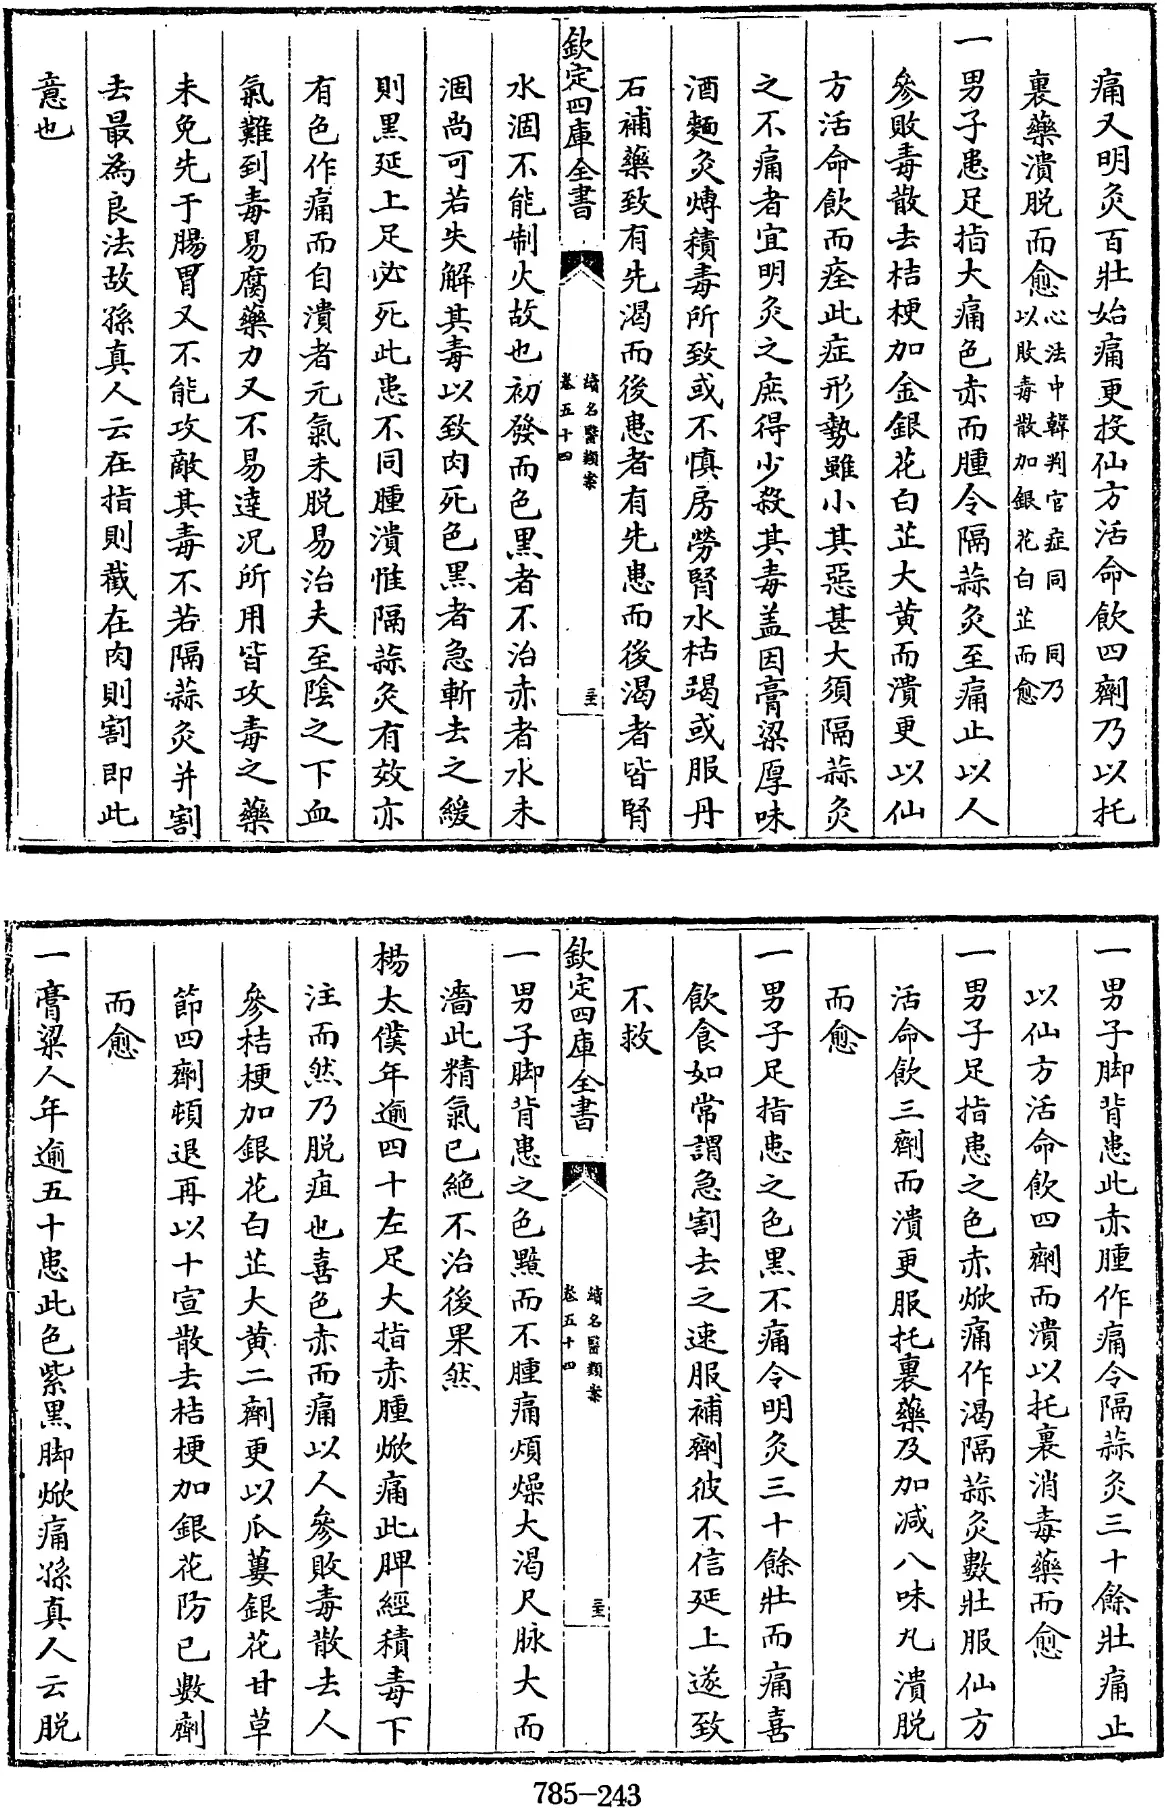 痛又明灸百壯始痛更投仙方活命飲四劑乃以托
裏藥潰脱而愈心法中韓判官症同同乃以敗毒散加銀花白芷而愈
一男子患足指大痛色赤而腫令隔蒜灸至痛止以人
參敗毒散去桔梗加金銀花白芷大黄而潰更以仙
方活命飲而痊此症形勢雖小其惡甚大須隔蒜灸
之不痛者宜明灸之庶得少殺其毒盖因膏粱厚味
酒麵炙煿積毒所致或不慎房勞腎水枯竭或服丹
石補藥致有先渴而後患者有先患而後渴者皆腎
欽定四庫全書
續名醫類案
卷五十四
水涸不能制火故也初發而色黒者不治赤者水未
涸尚可若失解其毒以致肉死色黒者急斬去之緩
則黒延上足必死此患不同腫潰惟隔蒜灸有效亦
有色作痛而自潰者元氣未脱易治夫至陰之下血
氣難到毒易腐藥力又不易達况所用皆攻毒之藥
未免先于腸胃又不能攻敵其毒不若隔蒜灸并割
去最為良法故孫真人云在指則截在肉則割即此
意也
一男子脚背患此赤腫作痛令隔蒜灸三十餘壯痛止
以仙方活命飲四劑而潰以托裏消毒藥而愈
一男子足指患之色赤焮痛作渴隔蒜灸數壯服仙方
活命飲三劑而潰更服托裏藥及加減八味丸潰脱
而愈
一男子足指患之色黒不痛令明灸三十餘壯而痛喜
飲食如常謂急割去之速服補劑彼不信延上遂致
不救
欽定四庫全書
續名醫類案
卷五十四
一男子脚背患之色黯而不腫痛煩燥大渴尺脉大而
濇此精氣已絶不治後果然
楊太僕年逾四十左足大指赤腫焮痛此脾經積毒下
注而然乃脱疽也喜色赤而痛以人參敗毒散去人
參桔梗加銀花白芷大黄二劑更以瓜蔞銀花甘草
節四劑頓退再以十宣散去桔梗加銀花防已數劑
而愈
一膏粱人年逾五十患此色紫黒脚焮痛孫真人云脱
785-243